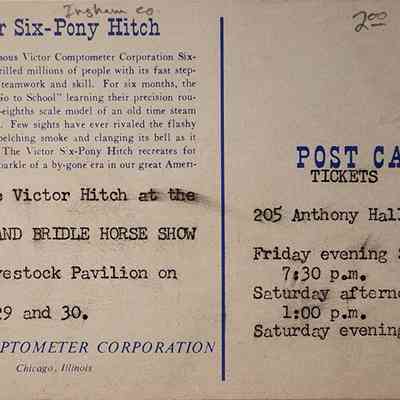 Ingham Co.
2.00
r Six-Pony Hitch
nous Victor Comptometer Corporation Six-
rilled millions of people with its fast step-
teamwork and skill. For six months, the
Go to School" learning their precision rou-
-eighths scale model of an old time steam
. Few sights have ever rivaled the flashy
belching smoke and clanging its bell as it
The Victor Six-Pony Hitch recreates for
parkle of a by-gone era in our great Ameri-
e Victor Hitch at the
AND BRIDLE HORSE SHOW
vestock Pavilion on
29 and 30.
PTOMETER CORPORATION
Chicago, Illinois
POST CA
TICKETS
205 Anthony Hall
Friday evening
7:30 p.m.
Saturday afterno
1:00 p.m.
Saturday evening